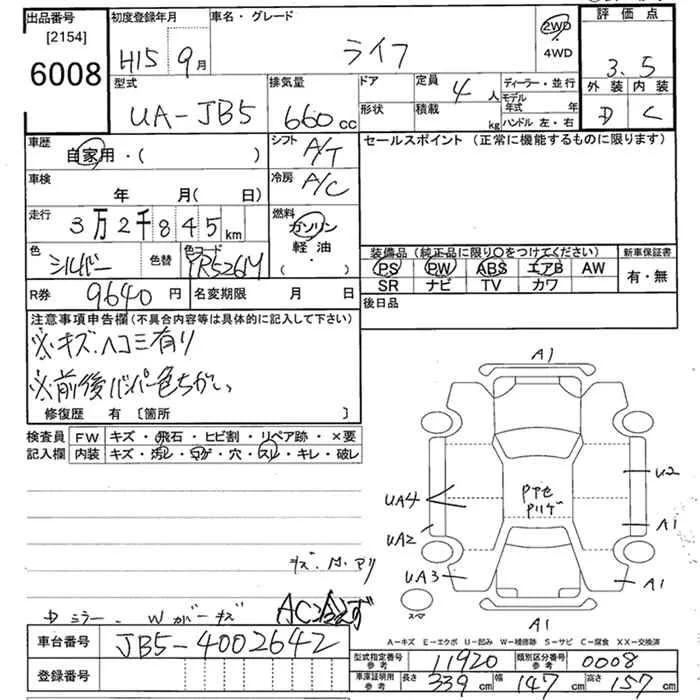 出品番号
[2154]
6008
初度登録年月
H15 9月
車名・グレード
ライフ
2WD
4WD
評価点
3.5
外装 内装
D C
型式
UA-JB5
排気量
660cc
ドア
形状
定員 4人
積載 kg
ディーラー・並行
モデル年式 年
ハンドル 左・右
車歴
自家用・( )
シフト
A/T
セールスポイント(正常に機能するものに限ります)
車検
年 月( 日)
冷房
A/C
走行
3万2千845km
燃料
ガソリン
軽油
( ・ )
色
シルバー
色替
色コード
YR526M
装備品(純正品に限り○をつけてください)
PS PW ABS エアB AW
SR ナビ TV カワ
新車保証書
有・無
R券
9640円
名変期限 月 日
後日品
注意事項申告欄(不具合内容等は具体的に記入して下さい)
※キズ.ヘコミ有り
※前後バンパー色ちがい
修復歴 有 〔箇所 〕
検査員
記入欄
FW キズ・飛石・ヒビ割・リペア跡・×要
内装 キズ・汚レ・コゲ・穴・スレ・キレ・破レ
A1
U2
UA4
A1
UA2
UA3
A1
スペア
A1
ミラー
キズ
AC冷えず
A=キズ E=エクボ U=凹み W=補修跡 S=サビ C=腐食 XX=交換済
車台番号
JB5-4002642
登録番号
型式指定番号
参考
11920
類別区分番号
参考
0008
車庫証明用
参考
長さ 339cm 幅 147cm 高さ 157cm